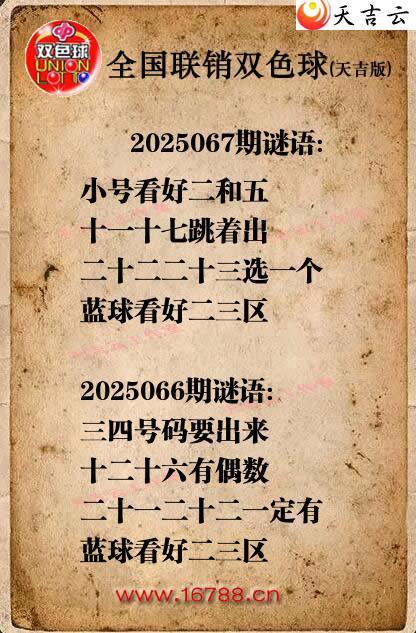 天吉云
双色球
UNION
LOTTO
全国联销双色球(天吉版)
2025067期谜语:
小号看好二和五
十一十七跳着出
二十二二十三选一个
蓝球看好二三区
2025066期谜语:
三四号码要出来
十二十六有偶数
二十一二十二一定有
蓝球看好二三区
www.16788.cn